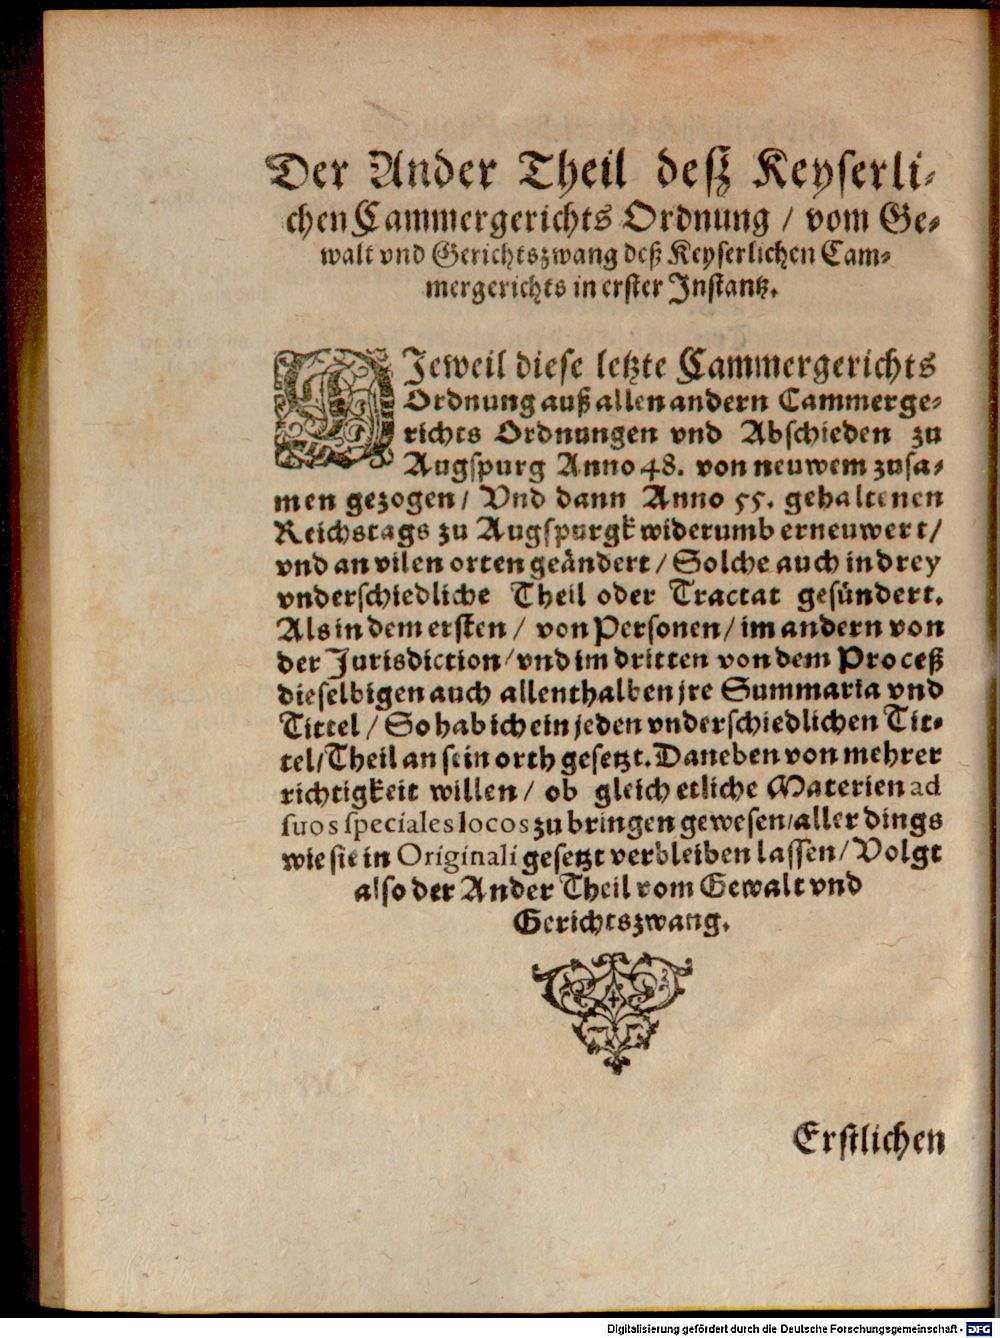 Der Ander Theil deß Keyserli-
chen Cammergerichts Ordnung / vom Ge-
walt vnd Gerichtszwang deß Keyserlichen Cam-
mergerichts in erster Instantz.
DJeweil diese letzte Cammergerichts
Ordnung auß allen andern Cammerge-
richts Ordnungen vnd Abschieden zu
Augspurg Anno 48. von neuwem zusa-
men gezogen / Vnd dann Anno 55. gehaltenen
Reichstags zu Augspurgk widerumb erneuwert /
vnd an vilen orten geändert / Solche auch in drey
vnderschiedliche Theil oder Tractat gesündert.
Als in dem ersten / von Personen / im andern von
der Jurisdiction / vnd im dritten von dem Proceß
dieselbigen auch allenthalben jre Summaria vnd
Tittel / So hab ich ein jeden vnderschiedlichen Tit-
tel / Theil an sein orth gesetzt. Daneben von mehrer
richtigkeit willen / ob gleich etliche Materien ad
suos speciales locos zu bringen gewesen / aller dings
wie sie in Originali gesetzt verbleiben lassen / Volgt
also der Ander Theil vom Gewalt vnd
Gerichtszwang.
Erstlichen
Digitalisierung gefördert durch die Deutsche Forschungsgemeinschaft - DFG